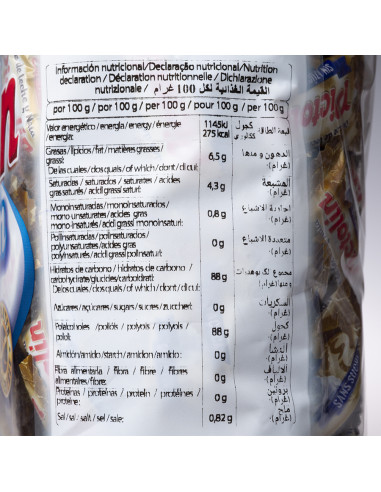 Información nutricional/Declaração nutricional/Nutrition
declaration/Déclaration nutritionnelle/Dichiarazione
nutrizionale / القيمة الغذائية لكل 100 غرام
por 100 g/por 100 g/ per 100 g/ pour 100 g/ per 100g
Valor energético/energia/energy/énergie 1145kJ كجول
/energia: 275 kcal قيمة الطاقة
Grasas/lípidos/fat/matières grasses/ 6,5 g الدهون و منها
grassi: (غرام)
De las cuales/dos quais/of which/dont/di cui:
Saturadas/saturados/saturates/acides 4,3 g المشبعة
gras saturés/acidi grassi saturi: (غرام)
Monoinsaturadas/monoinsaturados/ 0,8 g احادية الاشباع
mono unsaturates/acides gras (غرام)
mono-insaturés/acidi grassi monoinsaturi:
Poliinsaturadas/polinsaturados/ 0 g متعددة الاشباع
polyunsaturates/acides gras (غرام)
polyinsaturés/acidi grassi polinsaturi:
Hidratos de carbono / hidratos de carbono / 88 g
carbohydrate/glucides/carboidrati:
De los cuales/dos quais/of which/dont/di cui:
Azúcares/açúcares/sugars/sucres/zuccheri: 0 g السكريات
(غرام)
Polialcoholes /polióis / polyols / polyols / 88 g كحول
polioli: (غرام)
Almidón/amido/starch/amidon/amido: 0 g النشا
(غرام)
Fibra alimentaria / fibra / fibre / fibres 0 g الألياف
alimentaires/fibre: (غرام)
Proteínas / proteínas / protein / protéines / 0 g بروتين
proteine: (غرام)
Sal/sal/salt/sel/sale: 0,82 g ملح
(غرام)
SANS SU